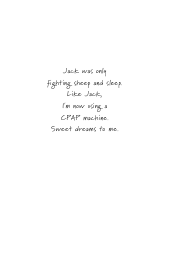 Jack was only
fighting sheep and sleep.
Like Jack,
I'm now using a
CPAP machine.
Sweet dreams to me.